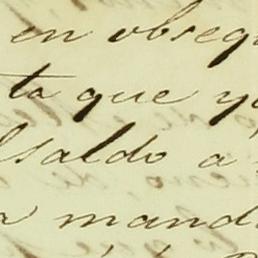 en obseq
ta que y
saldo a
mand